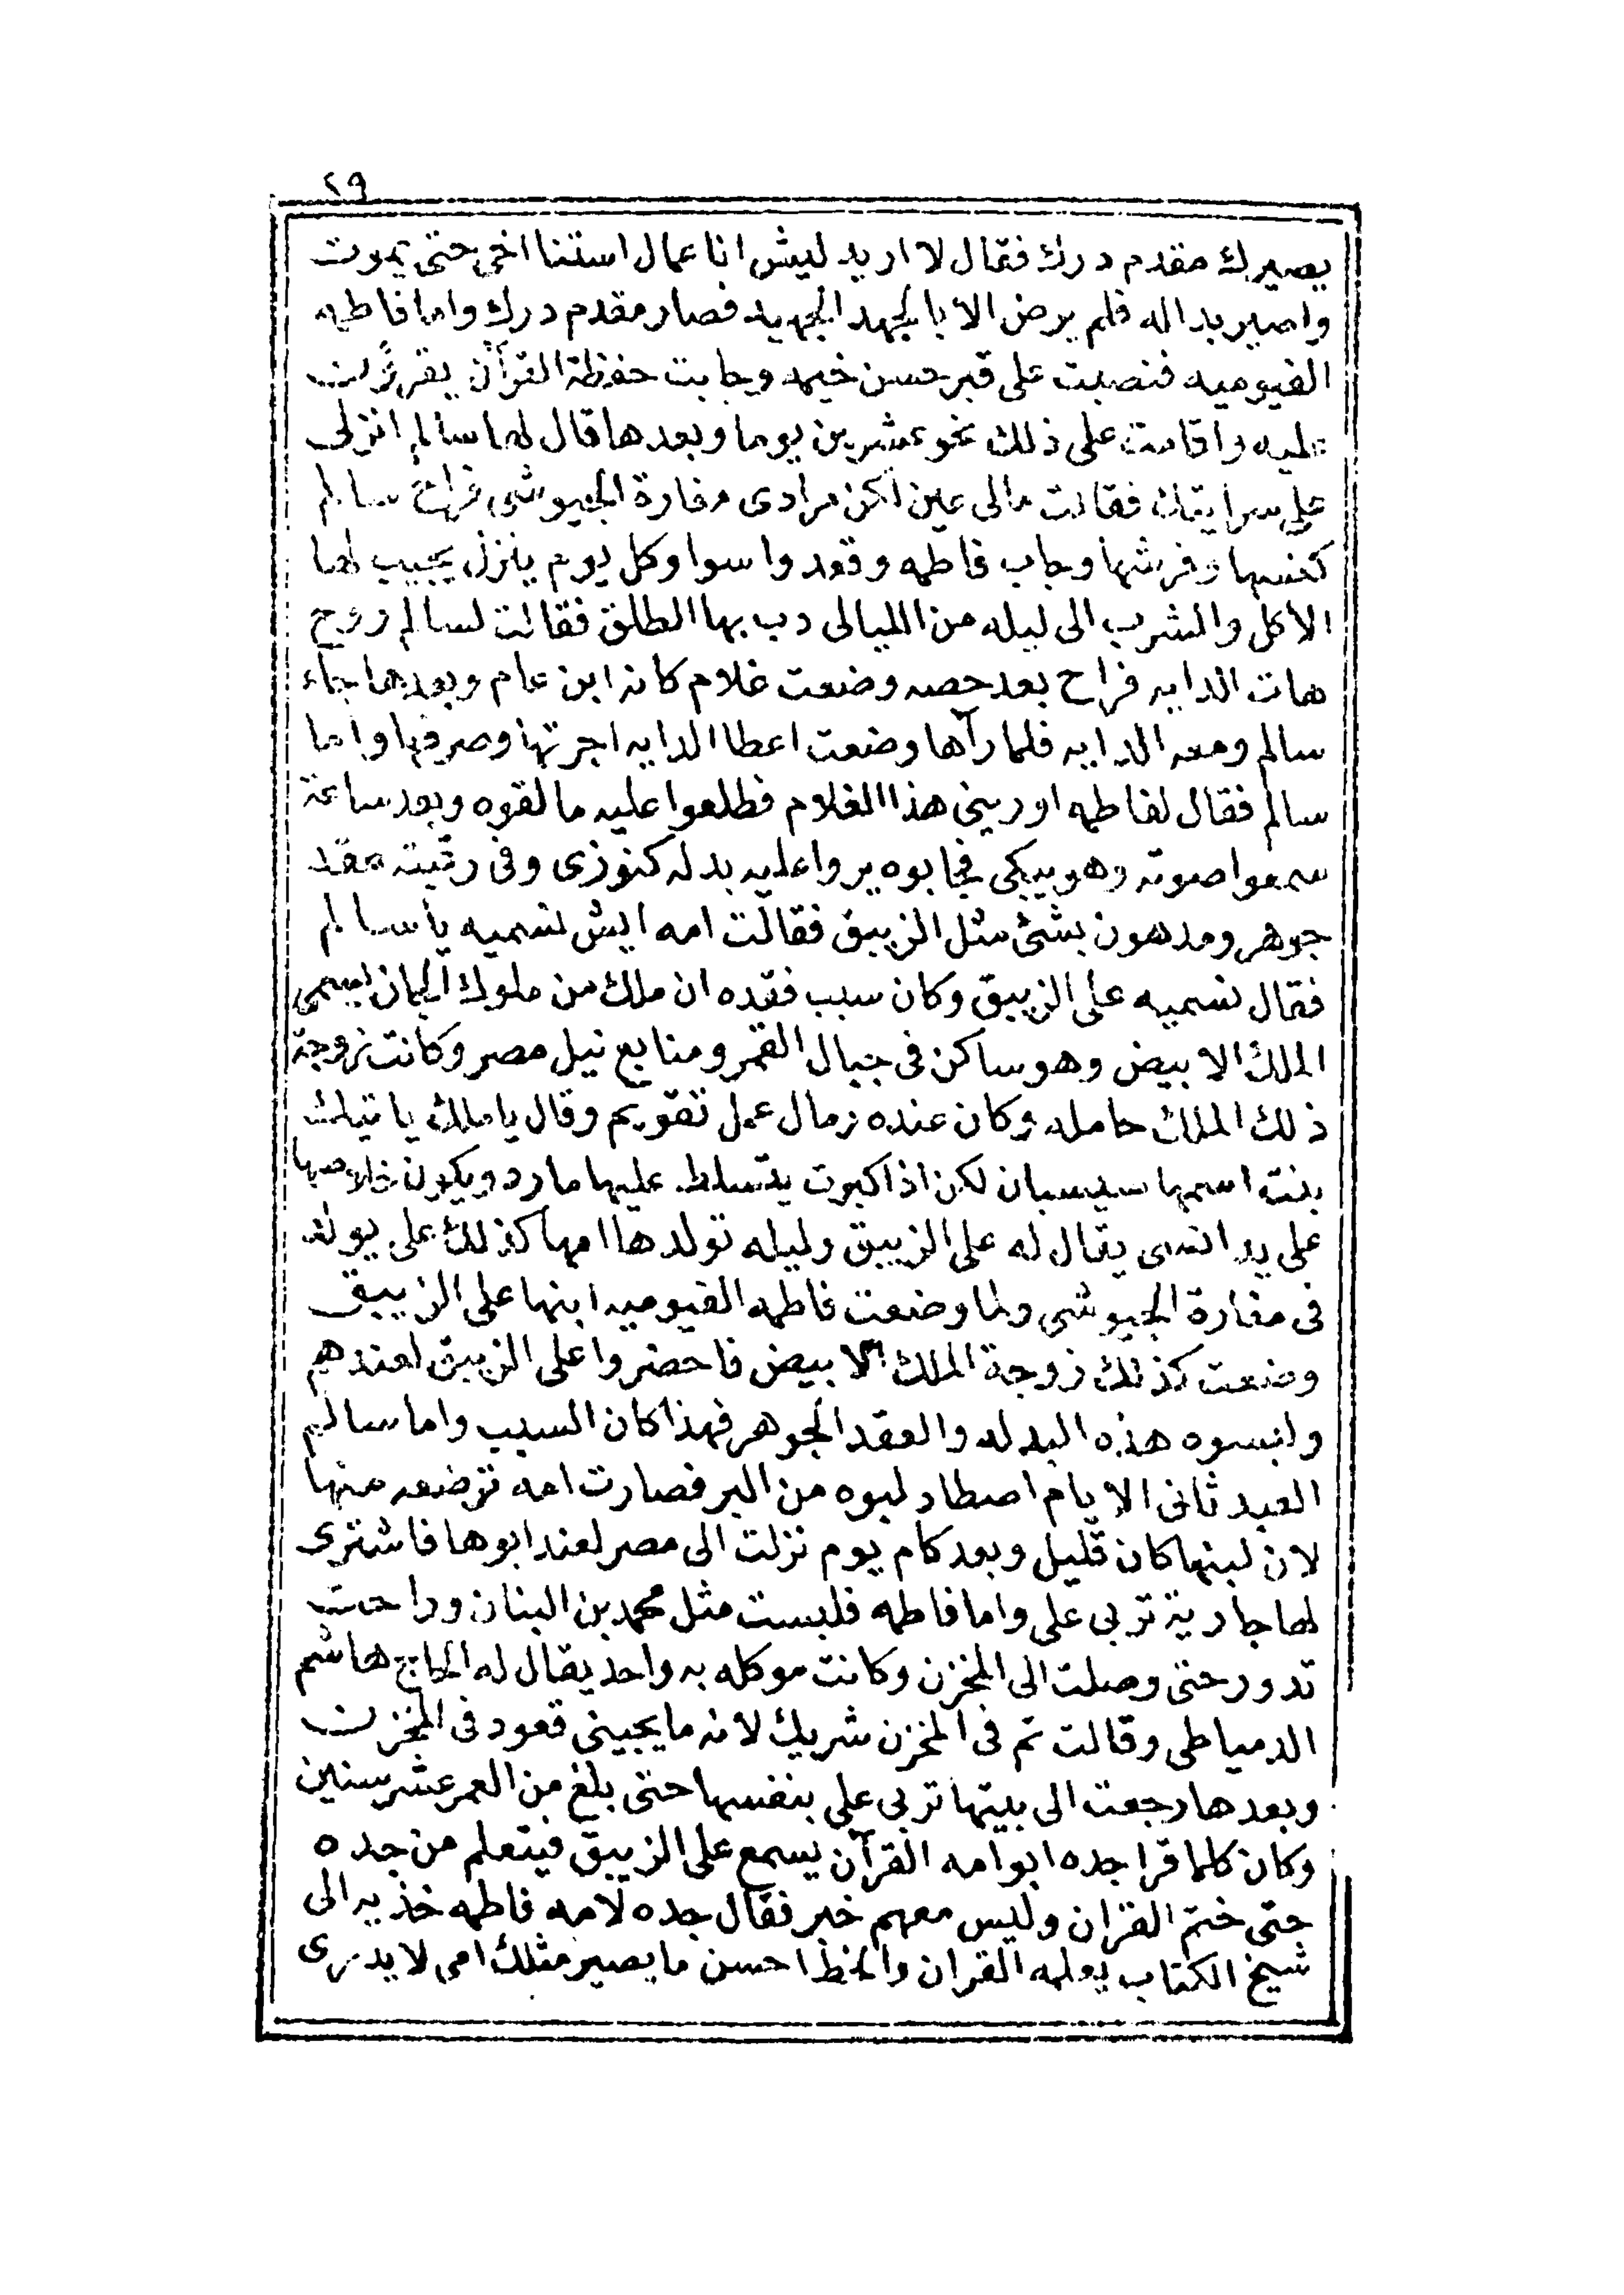 ٢٩
يصيرك مقدم درك فقال لا اريد ليش انا عمال استنا اخى حتى يموت
واصير بداله فلم يرض الا بالجهد الجهيد فصار مقدم درك واما فاطمه
الفيوميه فنصبت على قبر حسن خيمه وجابت حفظة القرآن يقرؤن
عليه واقامت على ذلك نحو عشرين يوما وبعدها قال لها سالم انزلى
على سرايتك فقالت مالى عين لكن مرادى مغارة الجيوشى فراح سالم
كنسها وفرشها وجاب فاطمه وقعدوا سوا وكل يوم ينزل يجيب لها
الاكل والشرب الى ليله من الليالى دب بها الطلق فقالت لسالم روح
هات الدايه فراح بعد حصه وضعت غلام كانه ابن عام وبعدها جاء
سالم ومعه الدايه فلما رآها وضعت اعطا الدايه اجرتها وصرفها واما
سالم فقال لفاطمه اورينى هذا الغلام فطلعوا عليه ما لقوه وبعد ساعة
سمعوا صوته وهو يبكى فجابوه يروا عليه بدله كنوزى وفى رقبته عقد
جوهر ومدهون بشئ مثل الزيبق فقالت امه ايش نسميه يا سالم
فقال نسميه على الزيبق وكان سبب فقده ان ملك من ملوك الجان يسمى
الملك الابيض وهو ساكن فى جبال القمر ومنابع نيل مصر وكانت زوجة
ذلك الملك حامله وكان عنده رمال عمل تقويم وقال يا ملك ياتيك
بنت اسمها سيسبان لكن اذا كبرت يتسلط عليها مارد ويكون خلاصها
على يد انسى يقال له على الزيبق وليله تولدها امها كذلك على يولد
فى مغارة الجيوشى ولما وضعت فاطمه الفيوميه ابنها على الزيبق
وضعت كذلك زوجة الملك الابيض فاحضروا على الزيبق لعندهم
والبسوه هذه البدله والعقد الجوهر فهذا كان السبب واما سالم
العبد ثانى الايام اصطاد لبوه من البر فصارت امه ترضعه منها
لان لبنها كان قليل وبعد كام يوم نزلت الى مصر لعند ابوها فاشترى
لها جارية تربى على واما فاطمه فلبست مثل محمد بن البنان وراحت
تدور حتى وصلت الى المخزن وكانت موكله به واحد يقال له الحاج هاشم
الدمياطى وقالت تم فى المخزن شريك لانه ما يجينى قعود فى المخزن
وبعدها رجعت الى بيتها تربى على بنفسها حتى بلغ من العمر عشر سنين
وكان كلما قرا جده ابو امه القرآن يسمع على الزيبق فيتعلم من جده
حتى ختم القران وليس معهم خبر فقال جده لامه فاطمه خذيه الى
شيخ الكتاب يعلمه القران والخط احسن ما يصير مثلك امى لا يدرى